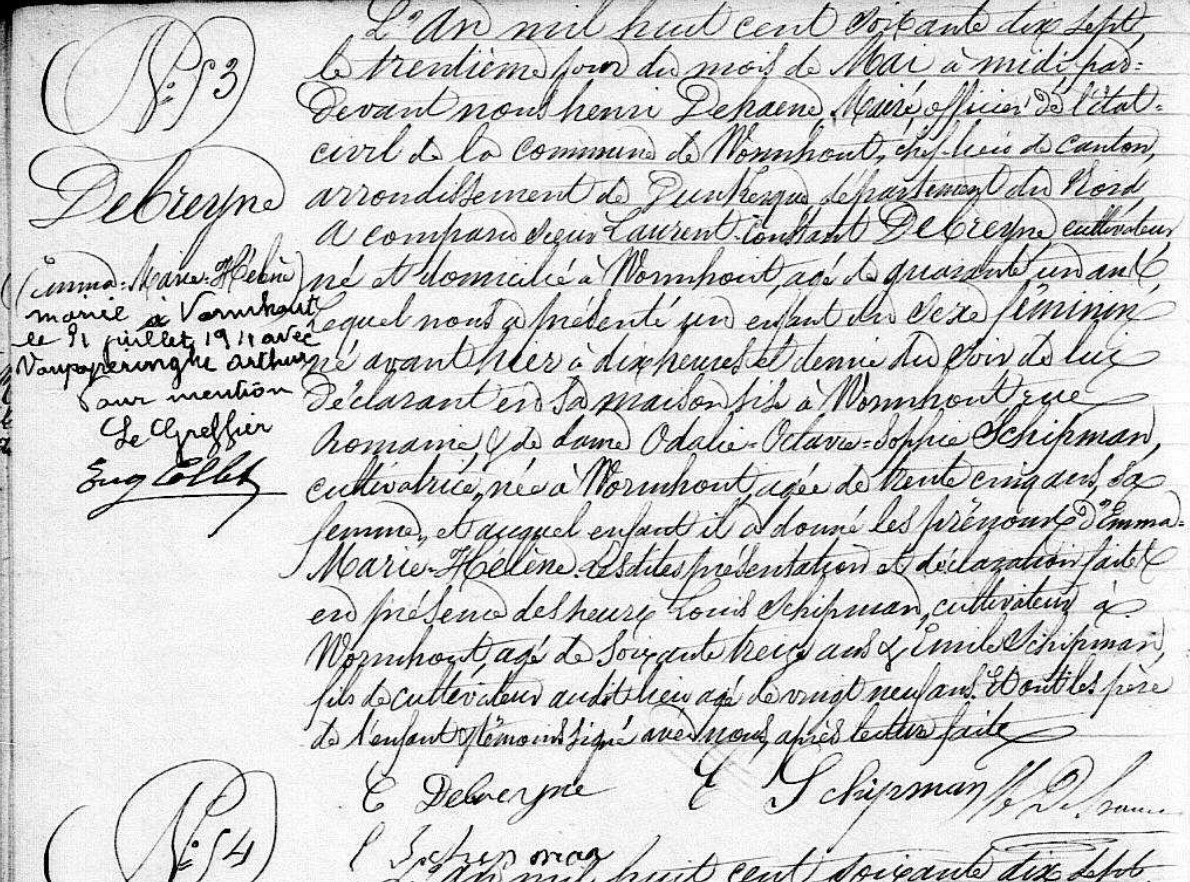 N° 53
Debreyne
(Emma-Marie-Hélène)
mariée à Wormhout
le 31 juillet 1911 avec
Vanpoperinghe Arthur
Pour mention
Le Greffier
Eug Collet
L'An mil huit cent soixante dix sept,
le trentième jour du mois de Mai à midi, par-
devant nous henri Dehaene, Maire, officier de l'état-
civil de la commune de Wormhout, chef-lieu de Canton,
arrondissement de Dunkerque département du Nord
a comparu sieur Laurent-Constant Debreyne cultivateur
né et domicilié à Wormhout, agé de quarante un ans
Lequel nous a présenté un enfant du sexe féminin,
né avant hier à dix heures et demie du soir de lui
déclarant en sa maison sise à Wormhout rue
Romaine, & de dame Odalie-Octavie-Sophie Schipman,
cultivatrice, née à Wormhout, agée de trente cinq ans, sa
femme, et auquel enfant il a donné les prénoms d'Emma-
Marie-Hélène. Lesdites présentation et déclaration faites
en présence des sieurs Louis Schipman, cultivateur à
Wormhout, agé de soixante treize ans & Emile Schipman,
fils de cultivateur audit lieu agé de vingt neuf ans. Et ont les père
de l'enfant & témoins signé avec nous, après lecture faite
C Debreyne E Schipman
L Schipman
N° 54
L'An mil huit cent soixante dix sept,